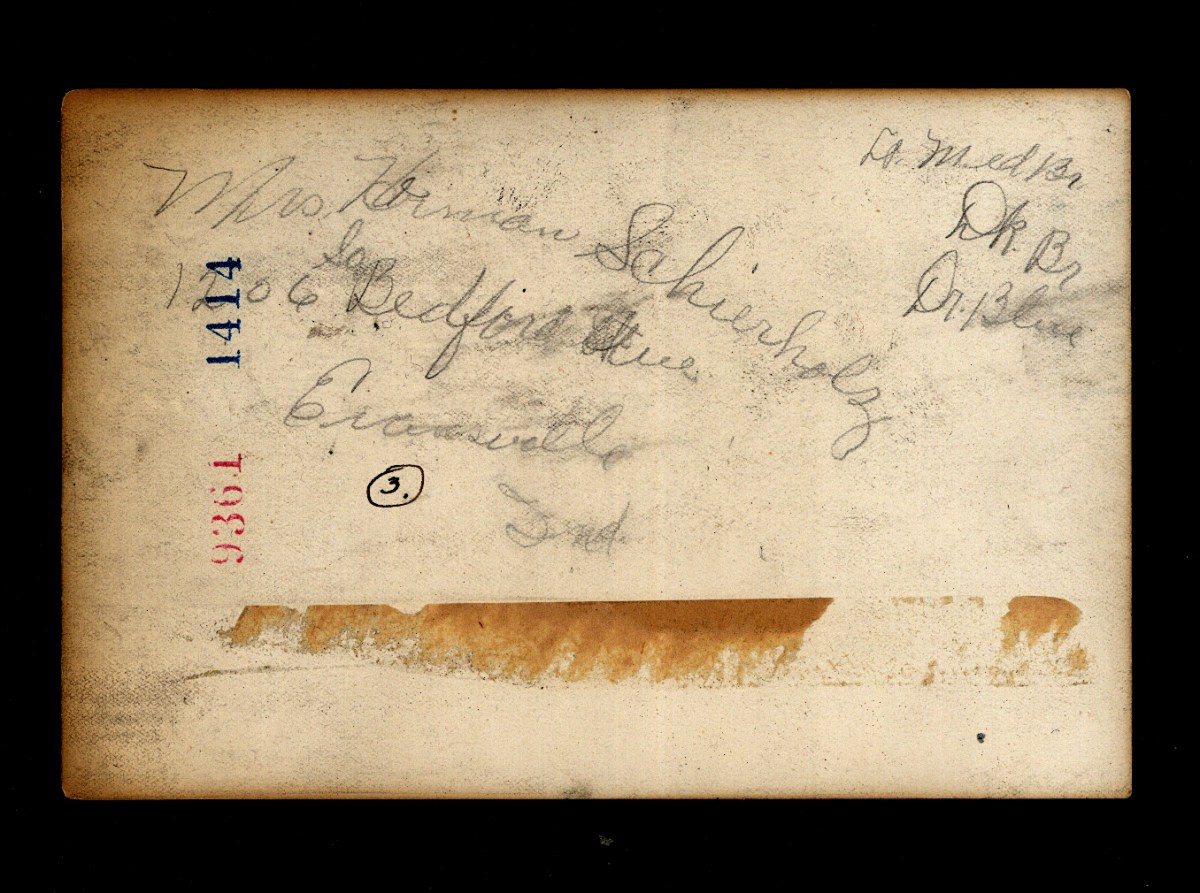 Mrs. Herman Schierholz
1206 So Bedford Ave
Evansville
Ind
3.
Med Br
Dk. Br
Dr. Blue
1414
9361